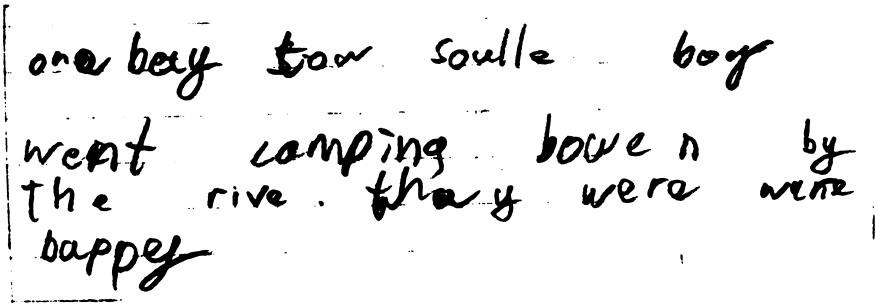 one bay tow soulle boy
went camping bowe n by
the rive. thay were wene
bappey